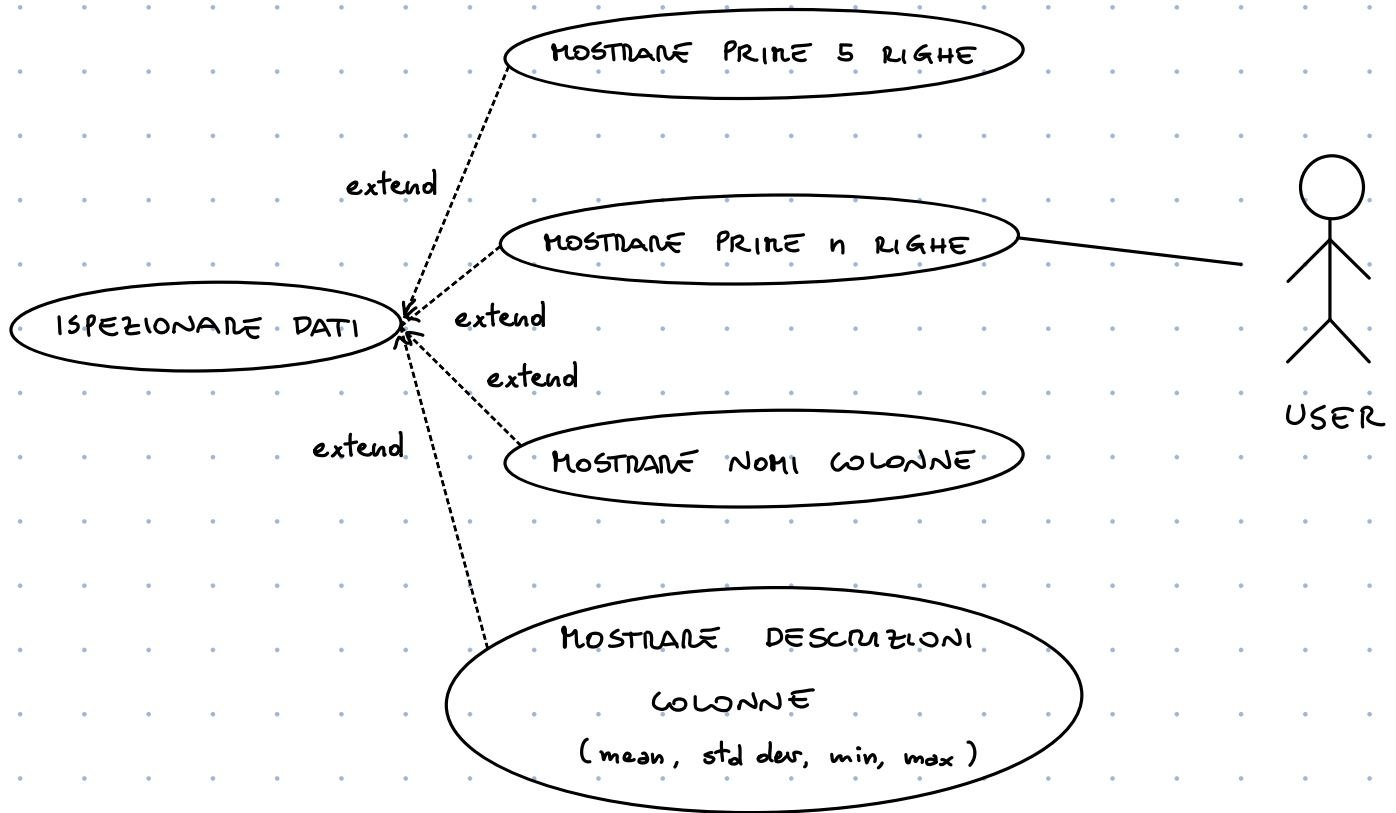 MOSTRARE PRIME 5 RIGHE
extend
MOSTRARE PRIME n RIGHE
ISPEZIONARE DATI
extend
extend
USER
extend
MOSTRARE NOMI COLONNE
MOSTRARE DESCRIZIONI
COLONNE
(mean, std dev, min, max)